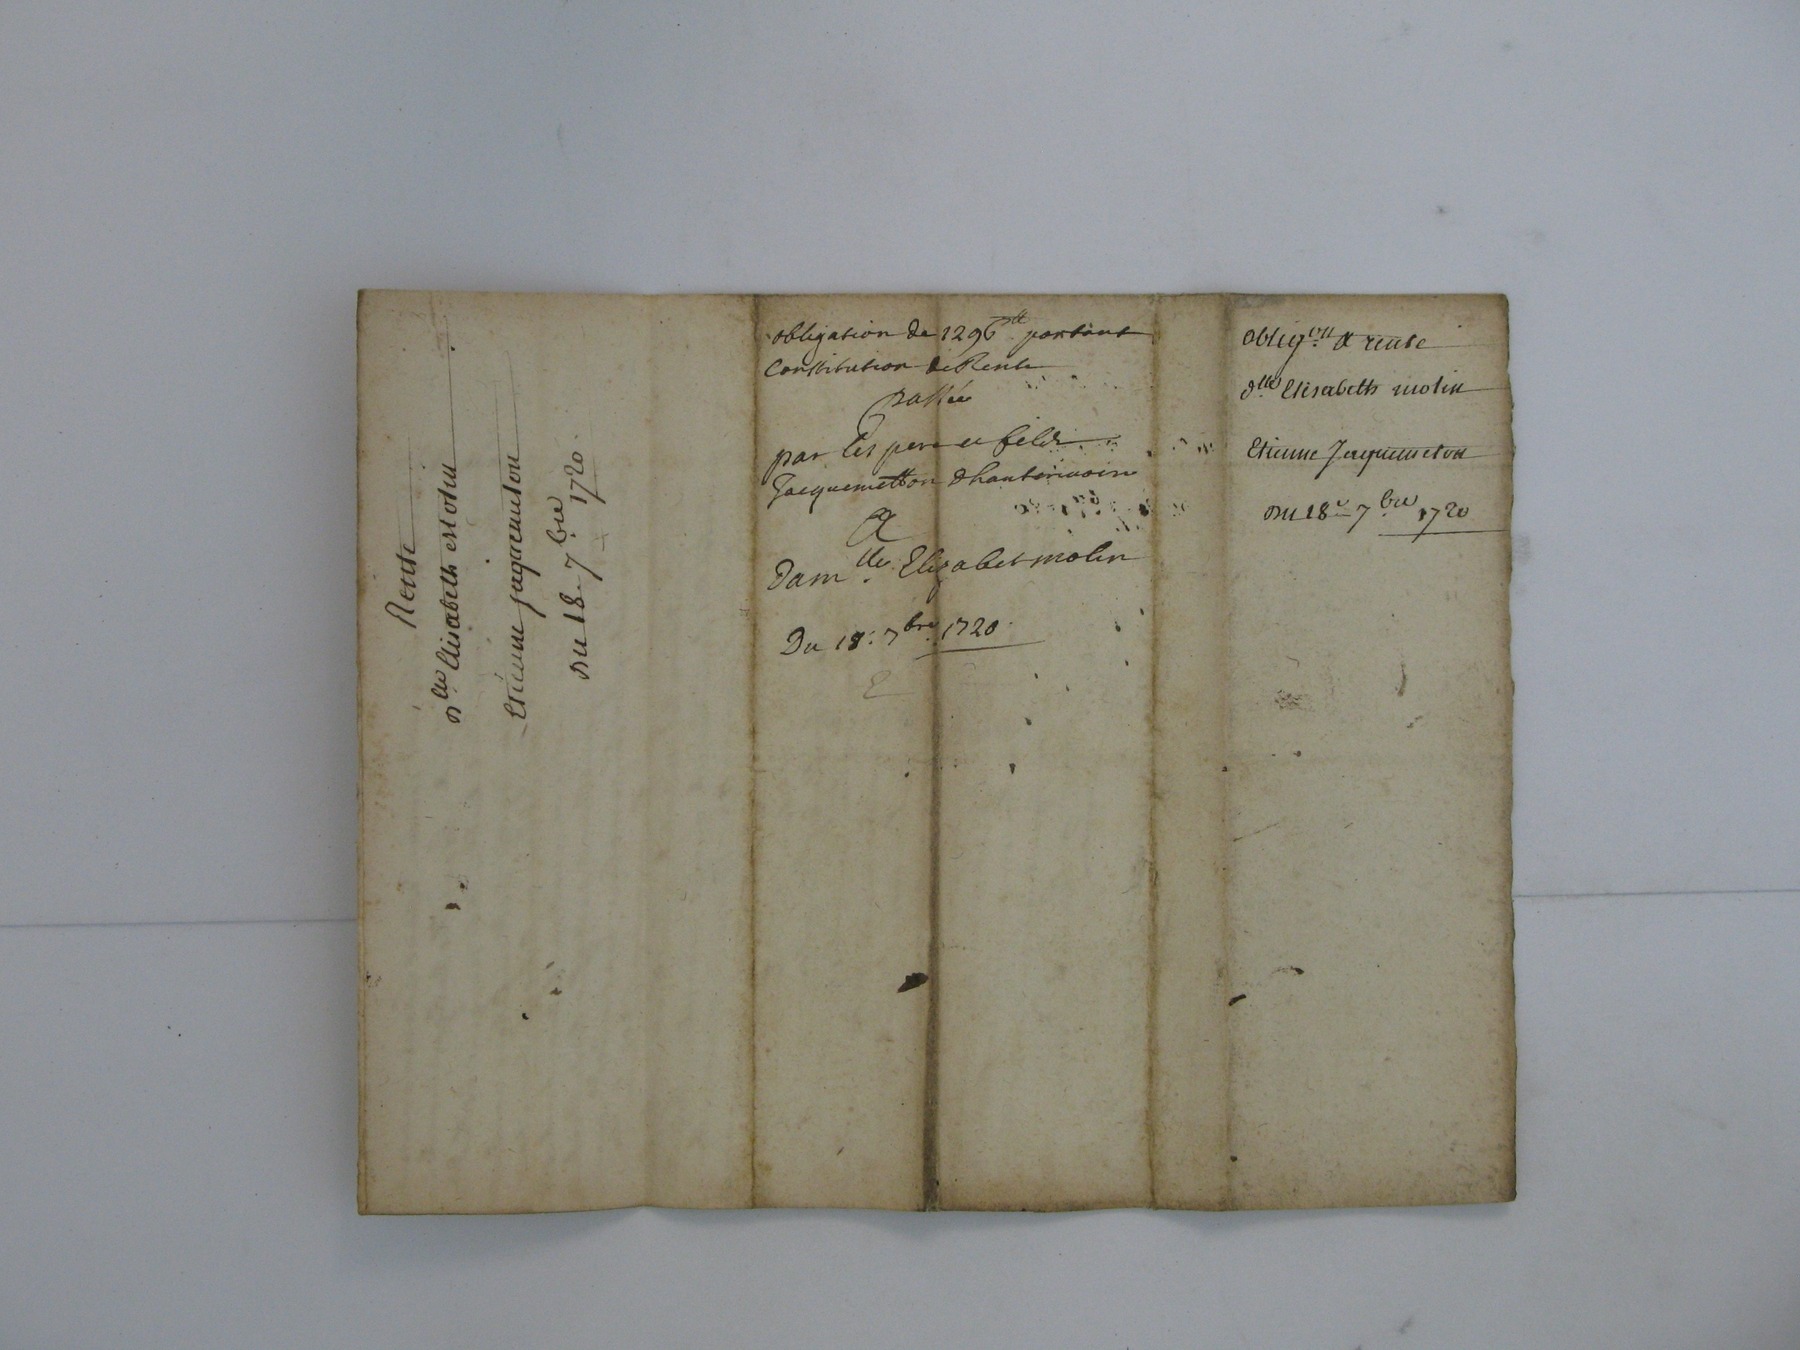 Rente
D.lle Elisabeth molin
Etienne jaquemeton
Du 18 7bre 1720.
obligation de 1296tt portant
Constitution de Rente
passée
par les pere et fils
Jacquemetton dhauterivoire
A
Damlle Elizabet molin
Du 18e 7bre 1720
oblig.on a rente
d.lle Elisabeth molin
Etienne Jaquemeton
Du 18e 7bre 1720